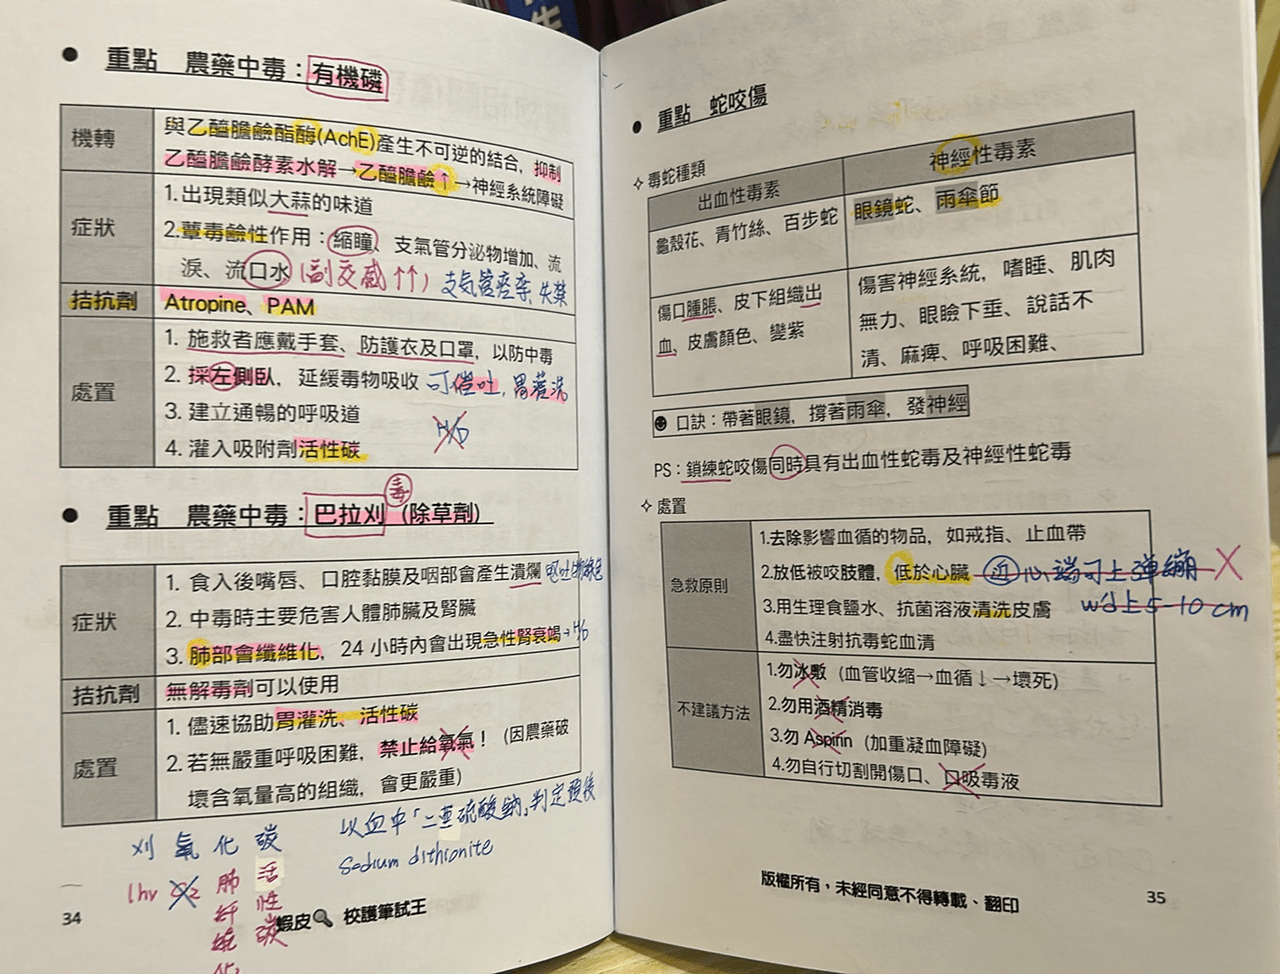 ● 重點 農藥中毒：有機磷
機轉
與乙醯膽鹼酯酶(AchE)產生不可逆的結合，抑制
乙醯膽鹼酵素水解→乙醯膽鹼↑→神經系統障礙
症狀
1.出現類似大蒜的味道
2.蕈毒鹼性作用：縮瞳、支氣管分泌物增加、流
淚、流口水 (副交感↑↑) 支氣管痙攣,失禁
拮抗劑
Atropine、PAM
處置
1. 施救者應戴手套、防護衣及口罩，以防中毒
2. 採左側臥，延緩毒物吸收 可催吐,胃灌洗
3. 建立通暢的呼吸道
H/D
4. 灌入吸附劑活性碳
毒
● 重點 農藥中毒：巴拉刈 (除草劑)
症狀
1. 食入後嘴唇、口腔黏膜及咽部會產生潰爛 嘔吐物綠色
2. 中毒時主要危害人體肺臟及腎臟
3. 肺部會纖維化，24 小時內會出現急性腎衰竭→H/D
拮抗劑
無解毒劑可以使用
處置
1. 儘速協助胃灌洗、活性碳
2. 若無嚴重呼吸困難，禁止給氧氣！（因農藥破
壞含氧量高的組織，會更嚴重）
以血中「二亞硫酸鈉」判定預後
Sodium dithionite
刈 氧 化 碳
1hr O2 肺纖維化 活性碳
34
蝦皮🔍 校護筆試王
● 重點 蛇咬傷
✧ 毒蛇種類
出血性毒素
神經性毒素
龜殼花、青竹絲、百步蛇
眼鏡蛇、雨傘節
傷口腫脹、皮下組織出
血、皮膚顏色、變紫
傷害神經系統，嗜睡、肌肉
無力、眼瞼下垂、說話不
清、麻痺、呼吸困難、
☻ 口訣：帶著眼鏡，撐著雨傘，發神經
PS：鎖練蛇咬傷同時具有出血性蛇毒及神經性蛇毒
✧ 處置
急救原則
1.去除影響血循的物品，如戒指、止血帶
2.放低被咬肢體，低於心臟 近心端可上彈繃 X
3.用生理食鹽水、抗菌溶液清洗皮膚 wd上5-10cm
4.盡快注射抗毒蛇血清
不建議方法
1.勿冰敷（血管收縮→血循↓→壞死）
2.勿用酒精消毒
3.勿 Aspirin（加重凝血障礙）
4.勿自行切割開傷口、口吸毒液
版權所有，未經同意不得轉載、翻印
35